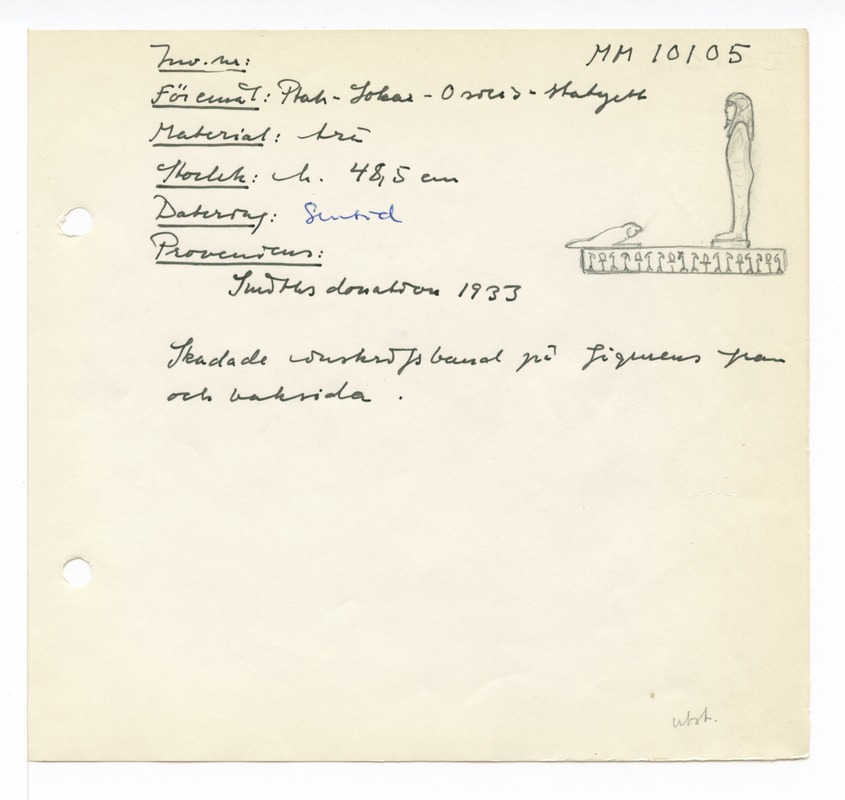 Inv.nr: MM 10105
Föremål: Ptah-Sokar-Osiris-statyett
Material: trä
Storlek: h. 48,5 cm
Datering: Sentid
Proveniens:
Smiths donation 1933
Skadade inskriftsband på figurens fram
och baksida.
utst.